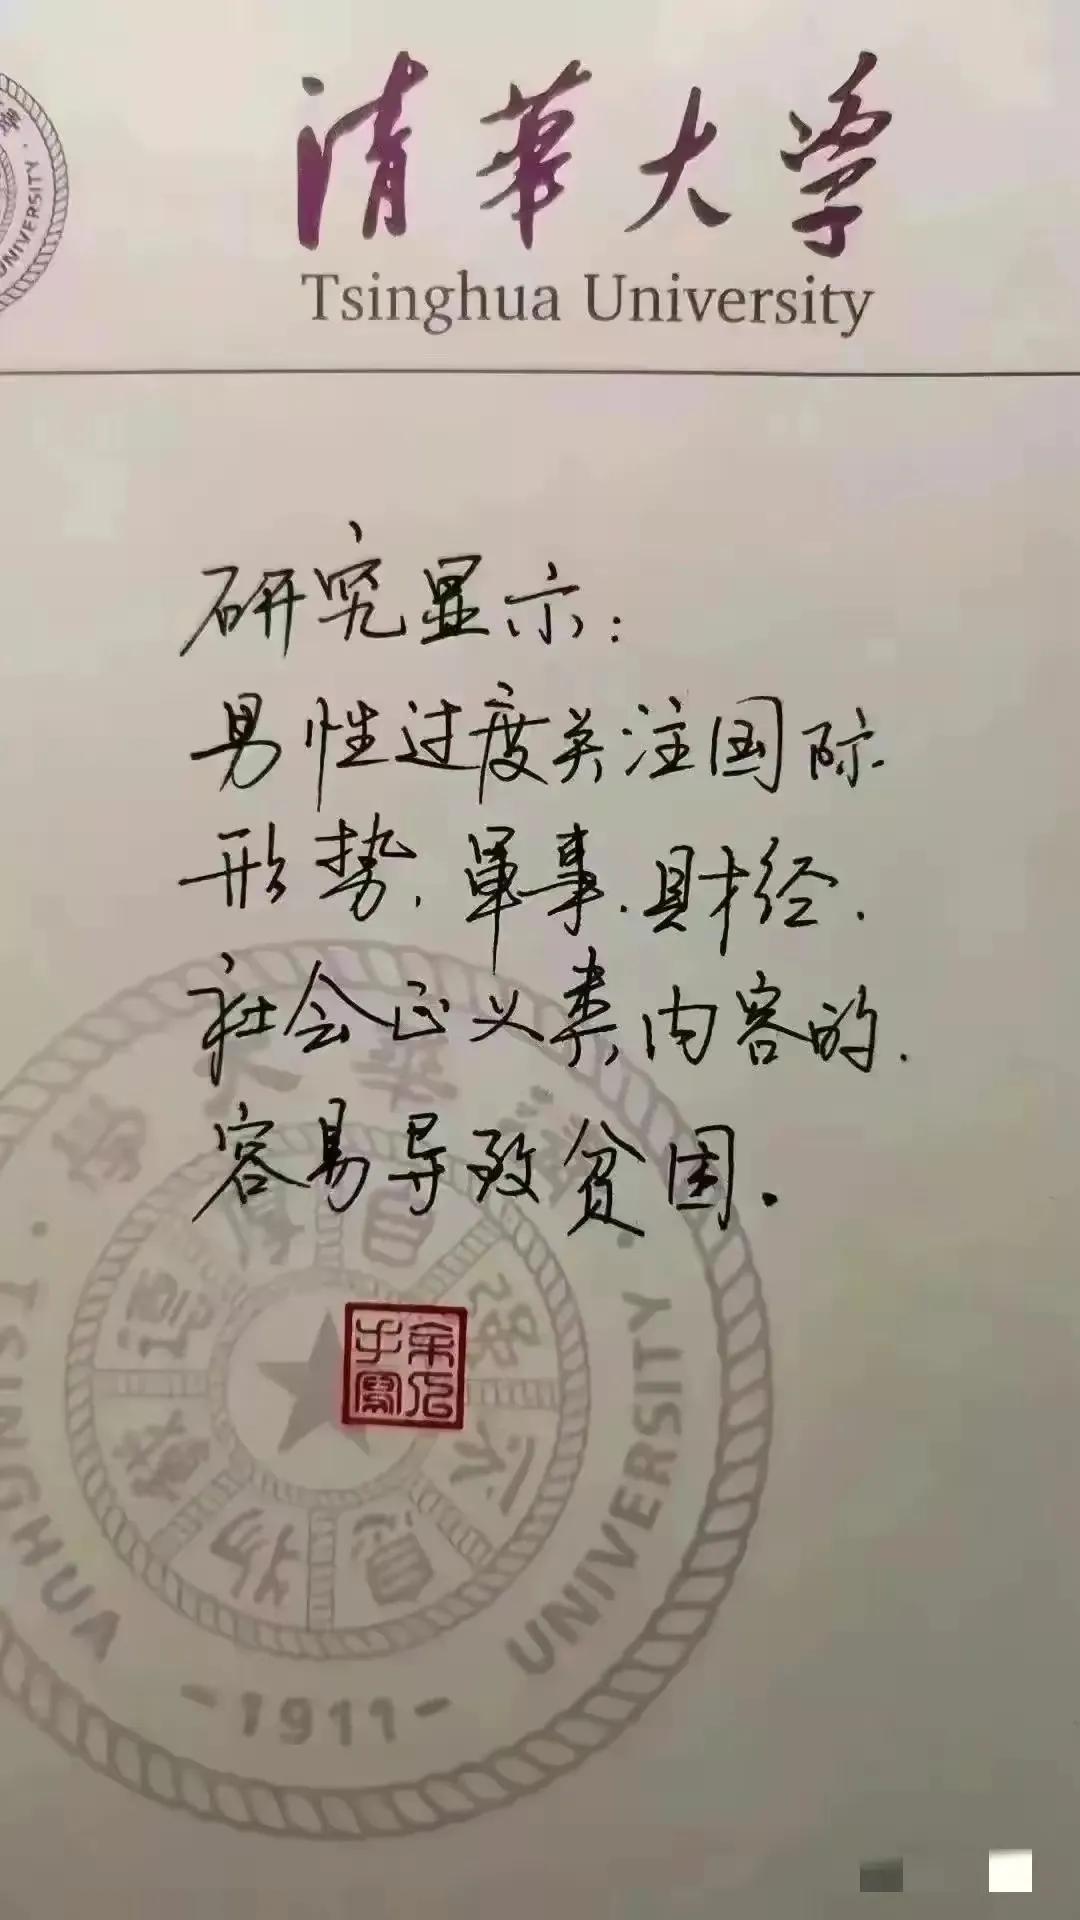 清華大学
Tsinghua University
UNIVERSITY
研究显示:
男性过度关注国际
形势、军事、财经、
社会正义类内容的、
容易导致贫困。
TSINGHUA UNIVERSITY
-1911-